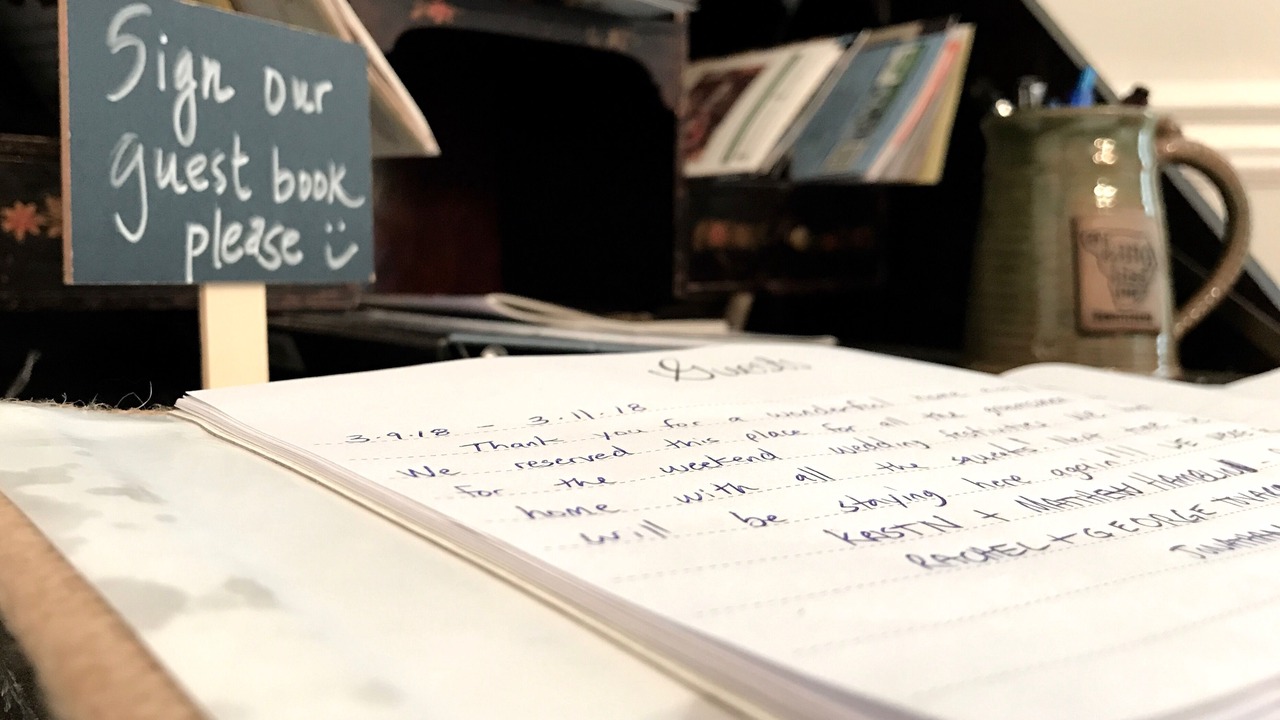 Sign our
guest book
please :)
Guests
3.9.18 - 3.11.18
Thank you for a wonderful home
We reserved this place for all the groomsmen
for the weekend wedding festivities. We
home with all the sweets! Next time
will be staying here again!!! WE WERE
KRISTIN + MATTHEW
RACHEL + GEORGE